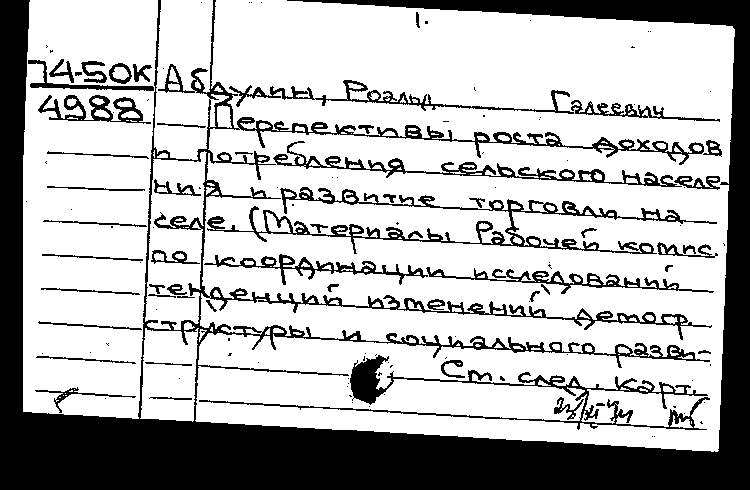 1.
74-50К
4988
Абдулин, Роальд Галеевич
Перспективы роста доходов
и потребления сельского населе-
ния и развитие торговли на
селе. (Материалы Рабочей комис.
по координации исследований
тенденций изменений демогр.
структуры и социального разви-
См. след. карт.